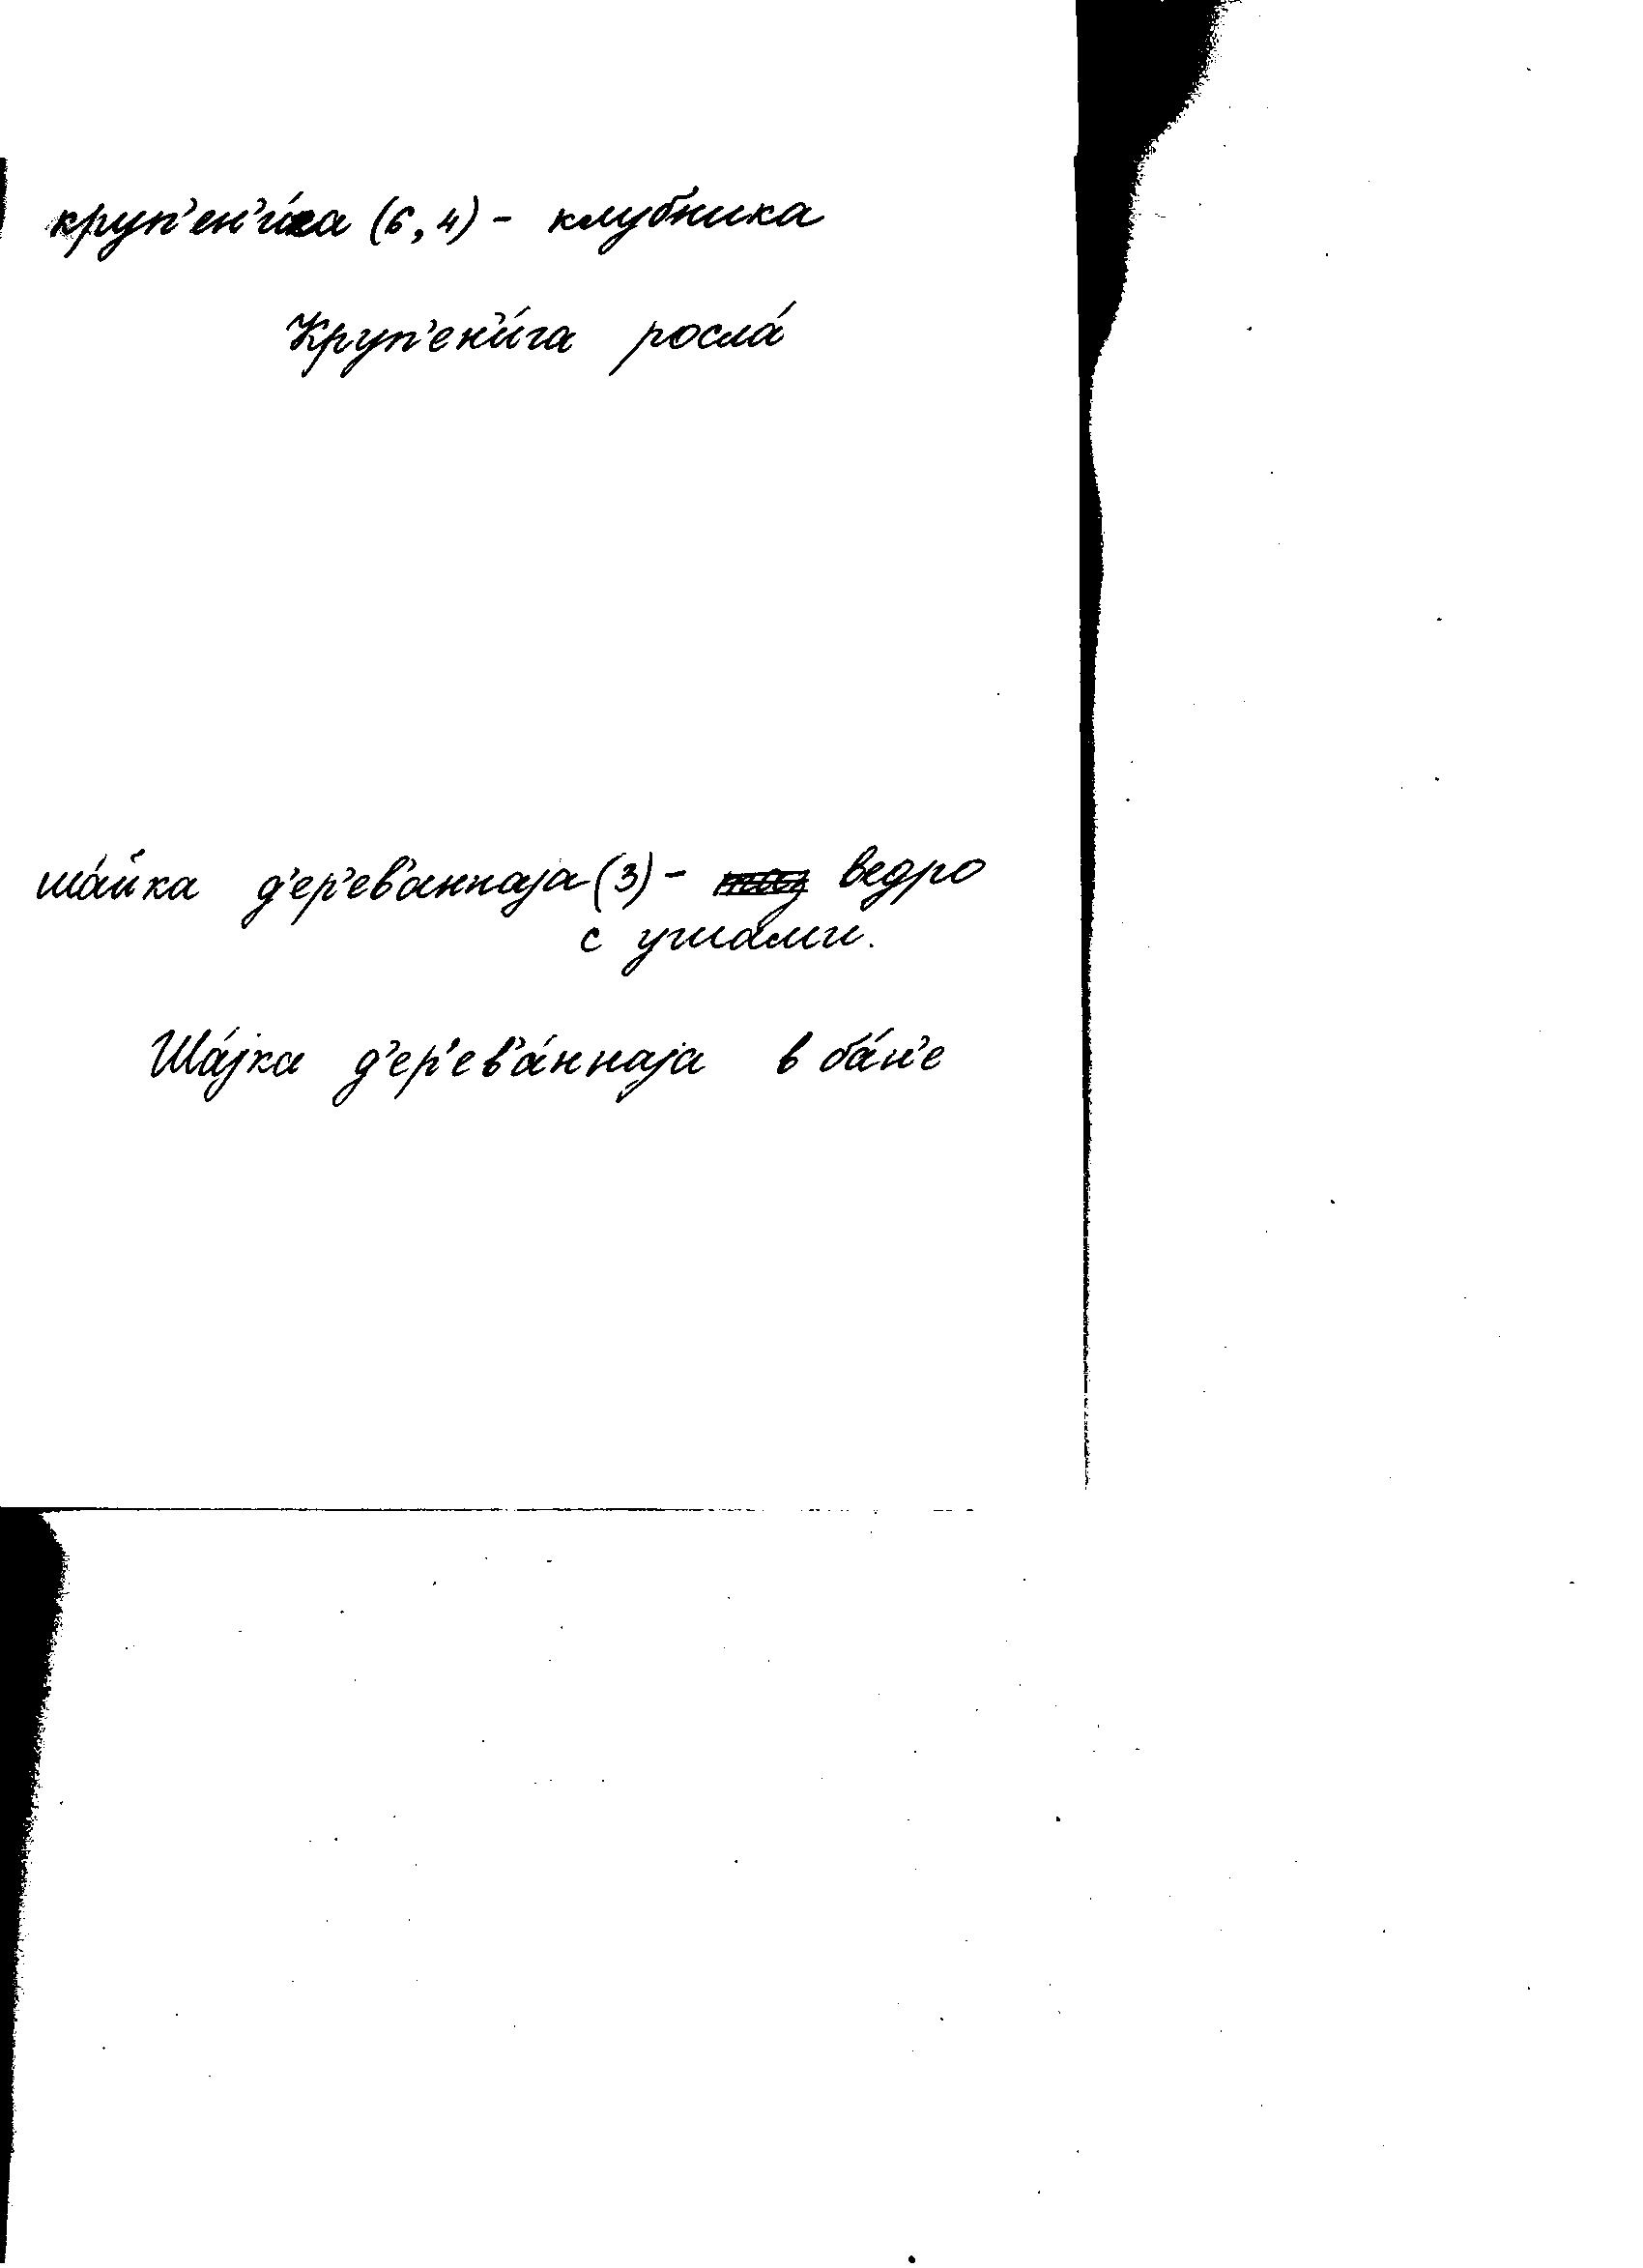 круп'ен'и́га (6, 4) - клубника
Круп'ен'и́га росла́
ша́йка д'ер'ев'аннаjа (3) - ведро
с ушами.
Ша́jка д'ер'ев'а́ннаjа в ба́н'е